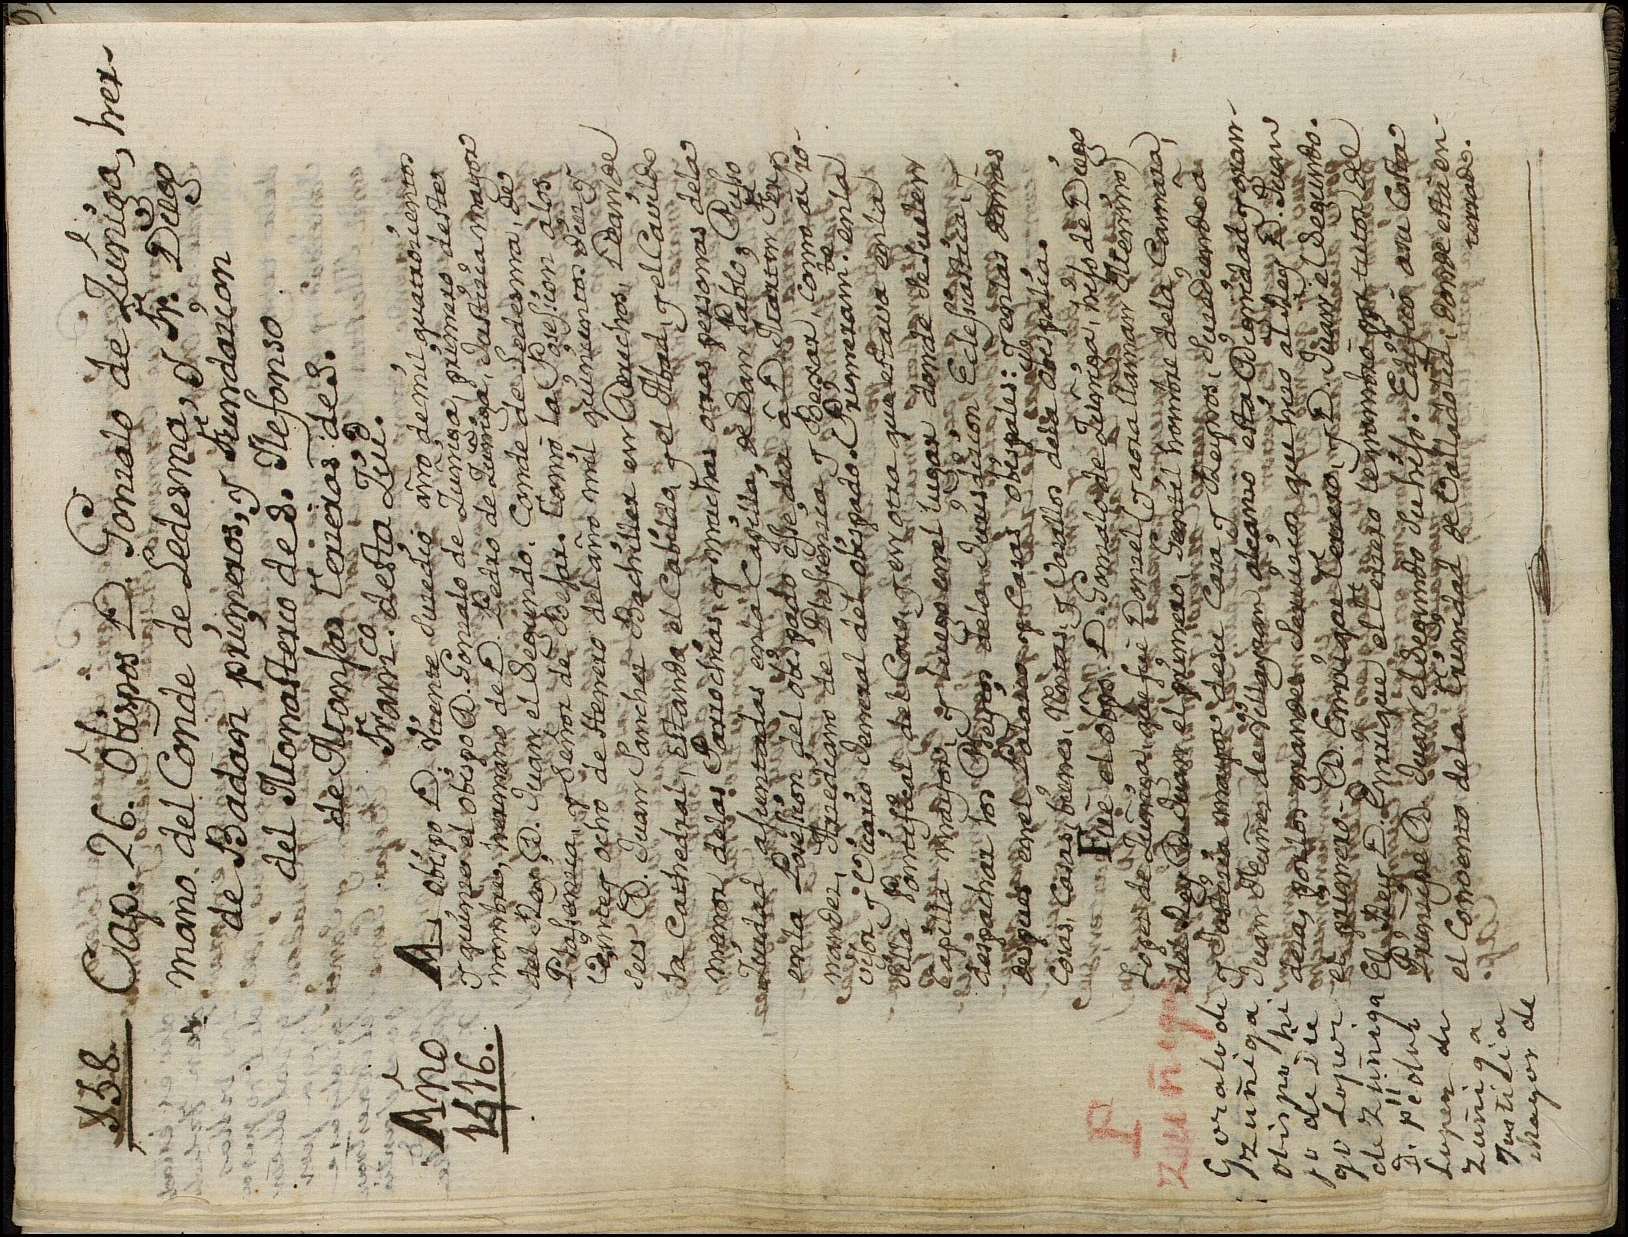 158.
Cap. 26. Obispos D. Gonzalo de Zúñiga, her-
mano del Conde de Ledesma, y Fr. Diego
de Badan primeros, y Fundacion
del Monasterio de S. Ilefonso
de Monjas Terceras de S.
Fran.co desta Ziu.d
Año
1416.
Al obispo D. Vicente sucedio año de mil quatrocientos
y quince el obispo D. Gonzalo de Zuñiga, primero deste
nombre, hermano de D. Pedro de Zuñiga, Justicia mayor
del Rey D. Juan el Segundo, Conde de Ledesma, de
Plasencia, y Señor de Bejar. Tomò la Posesion a los
de Henero del año mil quinientos diez y
seis D. Juan Sanchez Bachiller en Derechos, Dean de
la Cathedral, estando el Cabildo, y el Abad, y el Cavildo
menor de las Parrochias, y muchas otras personas de la
Ciudad ajuntadas en la Capilla de San Pablo, Puso
en la Posesion del obispado
mandez, Arcediano de Plasencia y Bexar, como a Pro-
visor y Vicario General del obispado. Primeram.te en la
silla Pontifical del Coro, y en otra que estava en la
Capilla mayor, y luego en el lugar donde se suelen
despachar los Pleytos de la Jurisdicion Eclesiastica, y
despues en el Palacio y Casas obispales: y en las demas
cosas, Casas, bienes, Rentas, y Vasallos de la obispalia.
Fue el obpo. D. Gonzalo de Zuñiga, hijo de Diego
Lopez de Zuñiga, que fue Donzel (y aora llaman Menino)
del Rey D. Juan el primero, Gentil hombre de la Camara,
y Justicia mayor de su Casa y Reynos. Sucediendo a
Juan Nuñez de Villazan alcanzo esta Dignidad, y gozan-
dola, por los grandes servicios que hizo al Rey D. Juan
el primero. D. Enrique Tercero, y D. Juan el Segundo.
El Rey D. Enrique el tercero le nombrò por tutor de
Principe D. Juan el Segundo su hijo. Edificò a su Costa
el Convento de la Trinidad de Valladolid, donde está en-
terrado.
F
zuñiga
Gozalo de
zuñiga
obispo hi
jo de die
go lopez
de zuñiga
D. pedro
lopez de
zuñiga
Justicia
mayor de